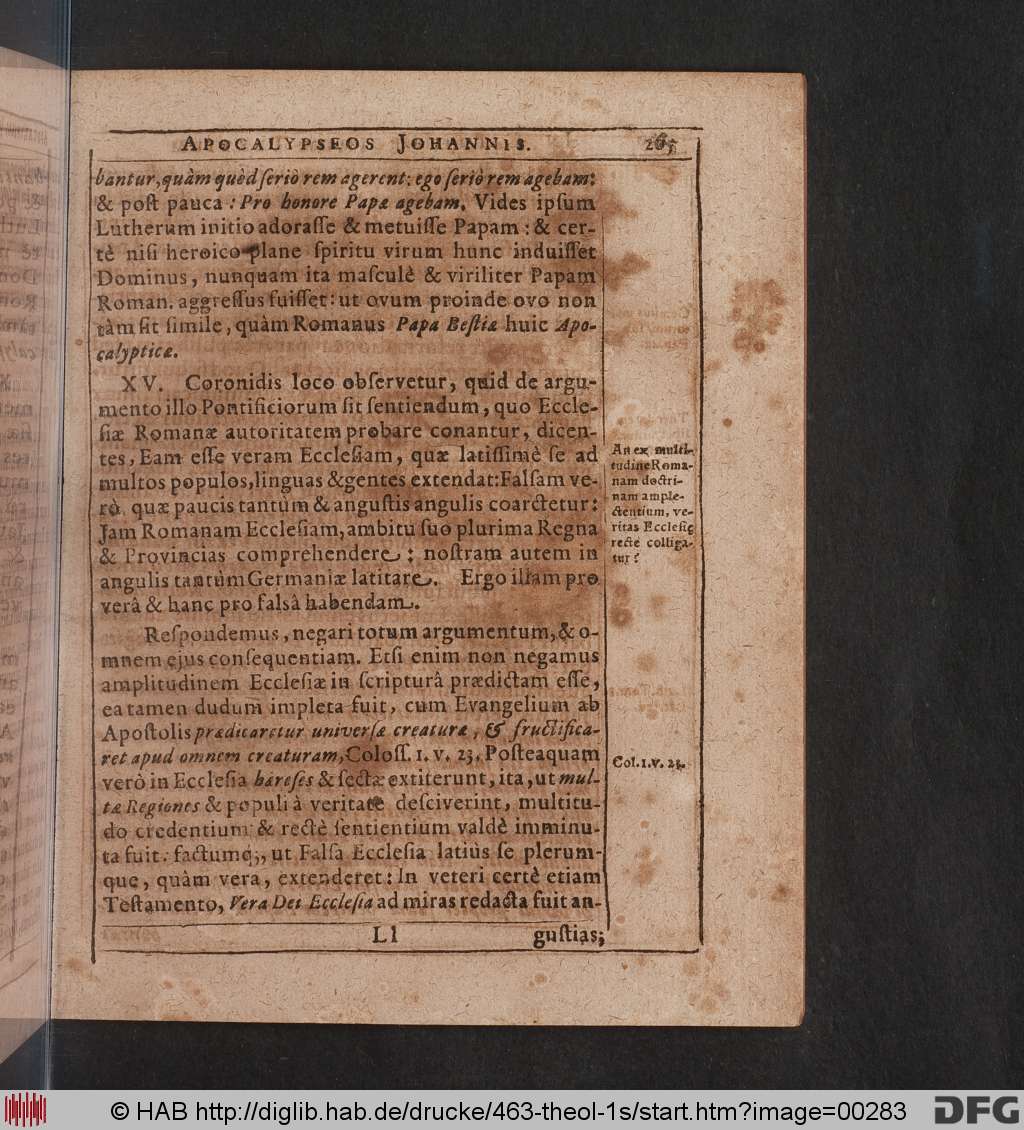 APOCALYPSEOS JOHANNIS. 265
bantur, quàm quòd seriò rem agerent: ego seriò rem agebam:
& post pauca: Pro honore Papæ agebam. Vides ipsum
Lutherum initio adorasse & metuisse Papam: & cer-
tè nisi heroico plane spiritu virum hunc induisset
Dominus, nunquam ita masculè & viriliter Papam
Roman. aggressus fuisset: ut ovum proinde ovo non
tàm sit simile, quàm Romanus Papa Bestiæ huic Apo-
calypticæ.
XV. Coronidis loco observetur, quid de argu-
mento illo Pontificiorum sit sentiendum, quo Eccle-
siæ Romanæ autoritatem probare conantur, dicen-
tes, Eam esse veram Ecclesiam, quæ latissimè se ad
multos populos, linguas & gentes extendat: Falsam ve-
rò, quæ paucis tantùm & angustis angulis coarctetur:
Jam Romanam Ecclesiam, ambitu suo plurima Regna
& Provincias comprehendere: nostram autem in
angulis tantùm Germaniæ latitare. Ergo illam pro
verâ & hanc pro falsâ habendam.
An ex multi-
tudine Roma-
nam doctri-
nam ample-
ctentium, ve-
ritas Ecclesię
rectè colliga-
tur?
Respondemus, negari totum argumentum, & o-
mnem ejus consequentiam. Etsi enim non negamus
amplitudinem Ecclesiæ in scripturâ prædictam esse,
ea tamen dudum impleta fuit, cum Evangelium ab
Apostolis prædicaretur universæ creaturæ, & fructifica-
ret apud omnem creaturam, Coloss. 1. v. 23. Posteaquam
verò in Ecclesia hæreses & sectæ extiterunt, ita, ut mul-
tæ Regiones & populi à veritate desciverint, multitu-
do credentium & rectè sentientium valdè imminu-
ta fuit: factumq;, ut Falsa Ecclesia latiùs se plerum-
que, quàm vera, extenderet: In veteri certè etiam
Testamento, Vera Dei Ecclesia ad miras redacta fuit an-
Col. 1. v. 23.
Ll gustias;
© HAB http://diglib.hab.de/drucke/463-theol-1s/start.htm?image=00283
DFG